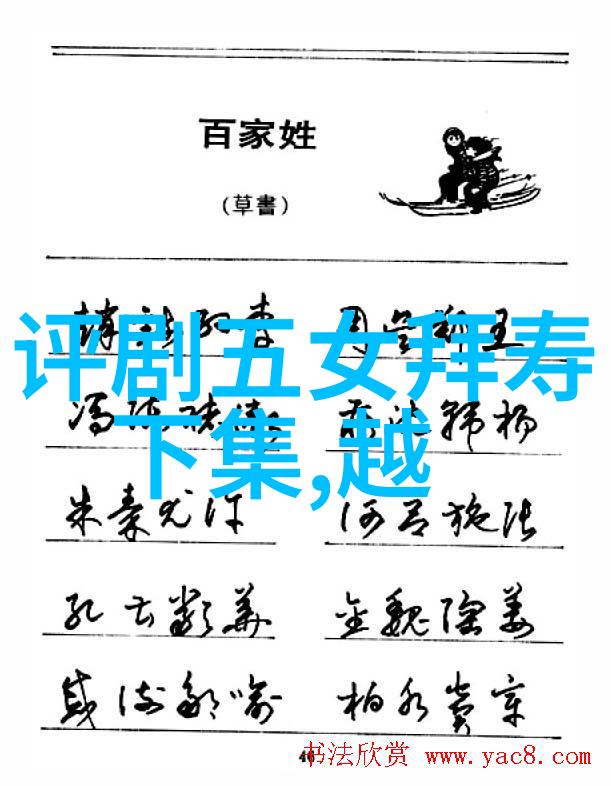 百家姓
(草書)
趙錢孫李 周吳鄭王
评剧五女拜寿
冯陈褚衛 蒋沈韩杨
下集,越
朱秦尤许 何吕施张
孔曹嚴華 金魏陶姜
戚谢鄒喻 柏水窦章
46
书法欣赏 www.yac8.com